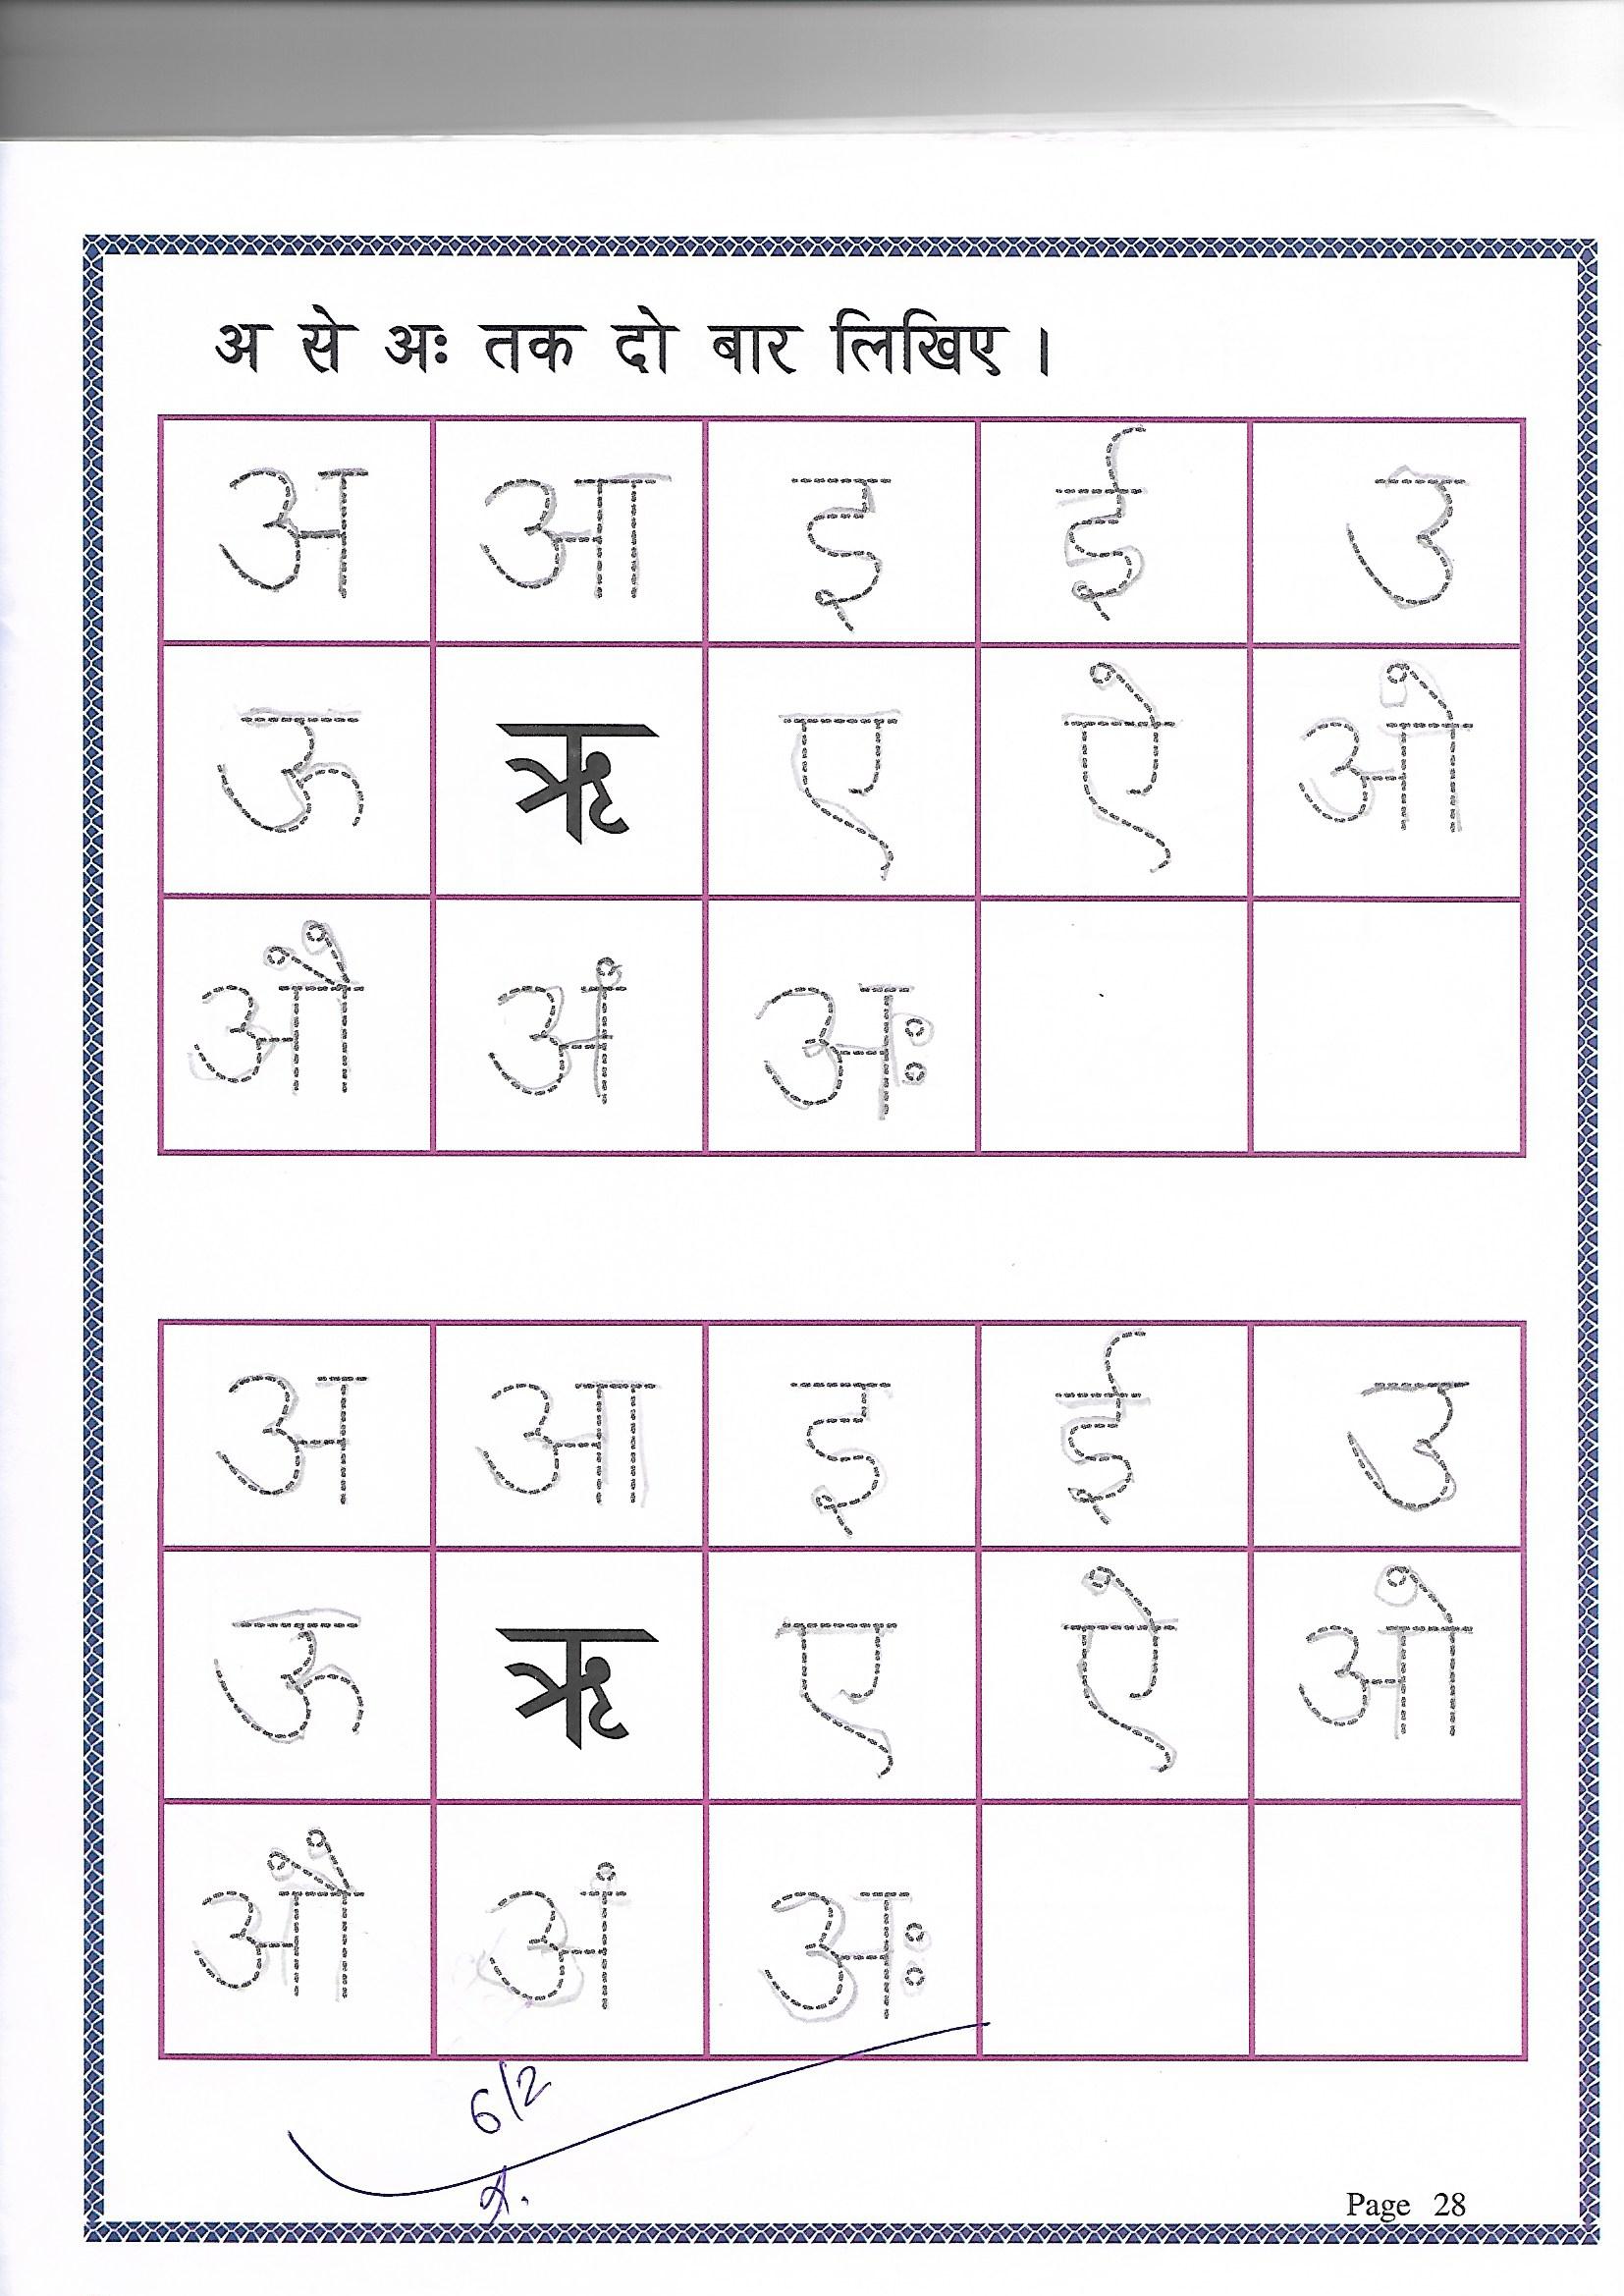 अ से अः तक दो बार लिखिए ।
अ आ इ ई उ
ऊ ऋ ए ऐ ओ
औ अं अः
अ आ इ ई उ
ऊ ऋ ए ऐ ओ
औ अं अः
6/2
Page 28